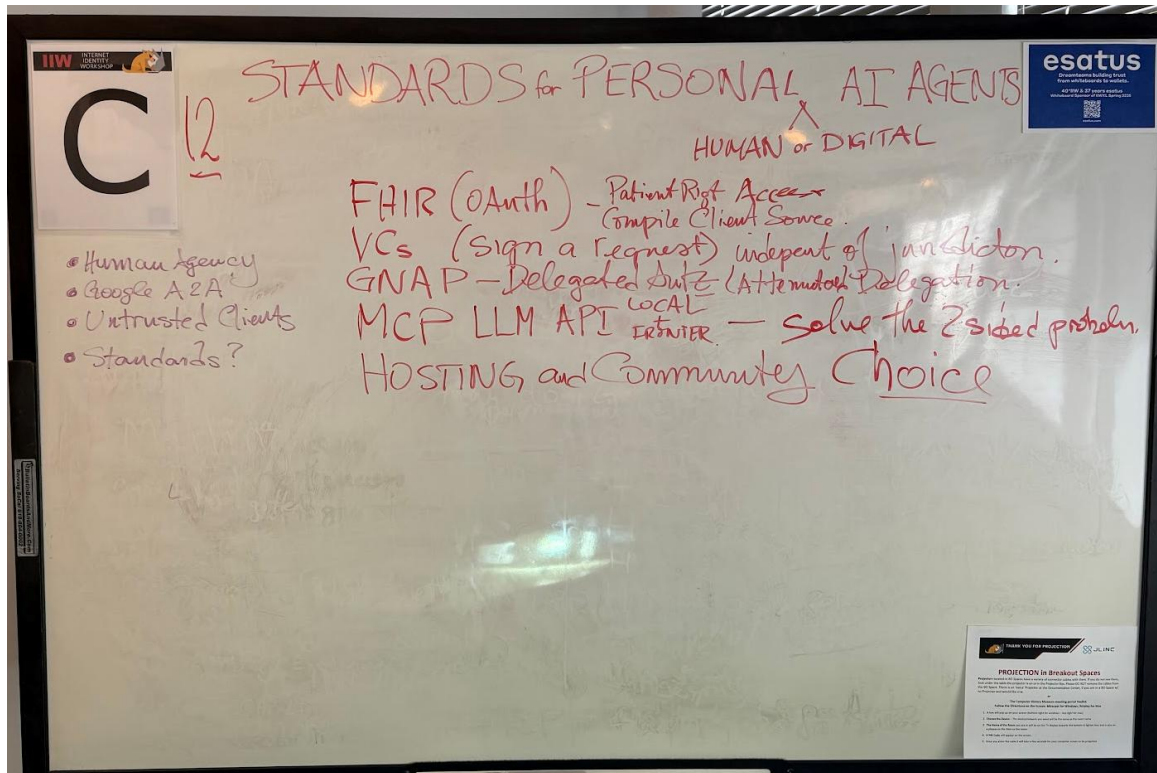 IIW INTERNET IDENTITY WORKSHOP
C
12
STANDARDS for PERSONAL AI AGENTS
HUMAN or DIGITAL
esatus
Dreamteams building trust
from whiteboards to wallets.
FHIR (OAuth) - Patient Rigt Access
Compile Client Source.
VCs (sign a request) indepent of jurisdicton.
GNAP - Delegated AutZ (Attenuated Delegation.
MCP LLM API LOCAL + FRONTIER - solve the 2 sided problem.
HOSTING and Community Choice
• Human Agency
• Google A2A
• Untrusted Clients
• Standards?
THANK YOU FOR PROJECTION
JLINC
PROJECTION in Breakout Spaces